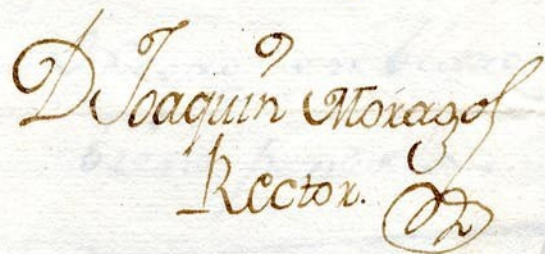 Dn Joaquin Moragos
Rector.